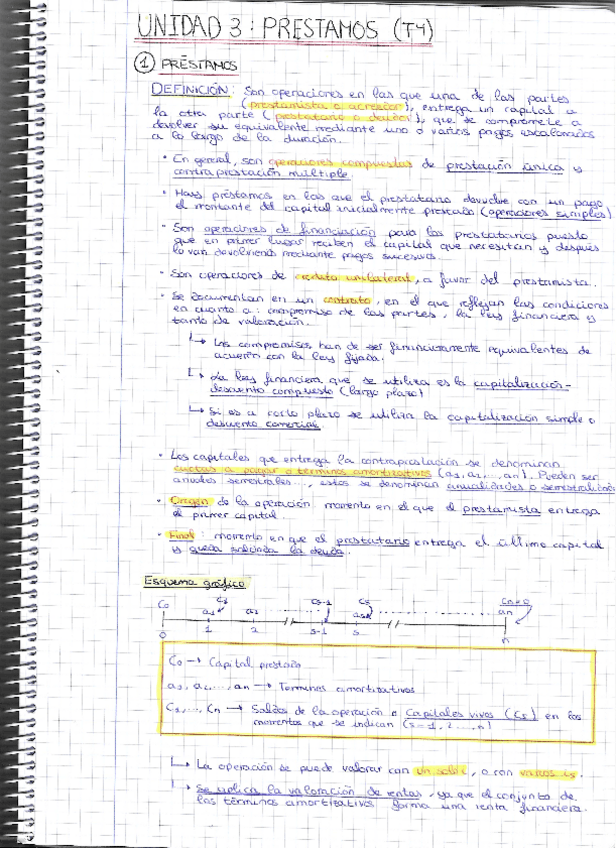 UNIDAD 3: PRÉSTAMOS (T4)
1 PRÉSTAMOS
DEFINICIÓN: Son operaciones en las que una de las partes
(prestamista o acreedor), entrega un capital a
la otra parte (prestatario o deudor), que se compromete a
devolver su equivalente mediante uno o varios pagos escalonados
a lo largo de la duración.
· En general, son operaciones compuestas de prestación única y
contraprestación múltiple.
· Hay préstamos en los que el prestatario devuelve con un pago
el montante del capital inicialmente prestado (operaciones simples)
· Son operaciones de financiación para los prestatarios puesto
que en primer lugar reciben el capital que necesitan y después
lo van devolviendo mediante pagos sucesivos.
· Son operaciones de crédito unilateral, a favor del prestamista.
· Se documentan en un contrato, en el que reflejan las condiciones
en cuanto a: compromiso de las partes, la ley financiera y
tanto de valoración.
↳ Los compromisos han de ser financieramente equivalentes de
acuerdo con la ley fijada.
↳ La ley financiera que se utiliza es la capitalización-
descuento compuesto (largo plazo)
↳ Si es a corto plazo se utiliza la capitalización simple o
descuento comercial.
· Los capitales que entrega la contraprestación se denominan
cuotas a pagar o términos amortizativos (a1, a2, ..., an). Pueden ser
anuales semestrales..., estos se denominan anualidades o semestralidades
· Origen de la operación: momento en el que el prestamista entrega
el primer capital.
· Final: momento en que el prestatario entrega el último capital
y queda saldada la deuda.
Esquema gráfico
C0 C1 Cs-1 Cs Cn=0
a1 a2 as an
0 1 2 s-1 s n
C0 → Capital prestado
a1, a2, ..., an → Términos amortizativos
C1, ..., Cn → Saldos de la operación o Capitales vivos (Cs) en los
momentos que se indican (s = 1, 2, ..., n)
↳ La operación se puede valorar con un solo i, o con varios is.
↳ Se aplica la valoración de rentas, ya que el conjunto de
los términos amortizativos forma una renta financiera.